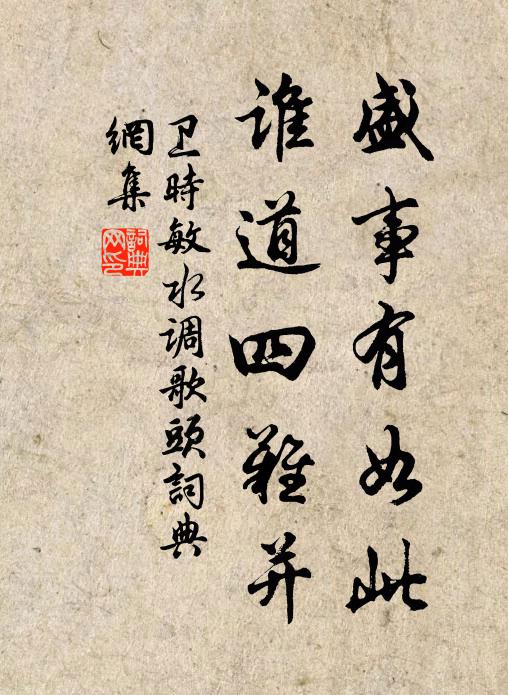 盛事有如此
谁道四難并
卫時敏水调歌頭詞典
網集
詞典网印